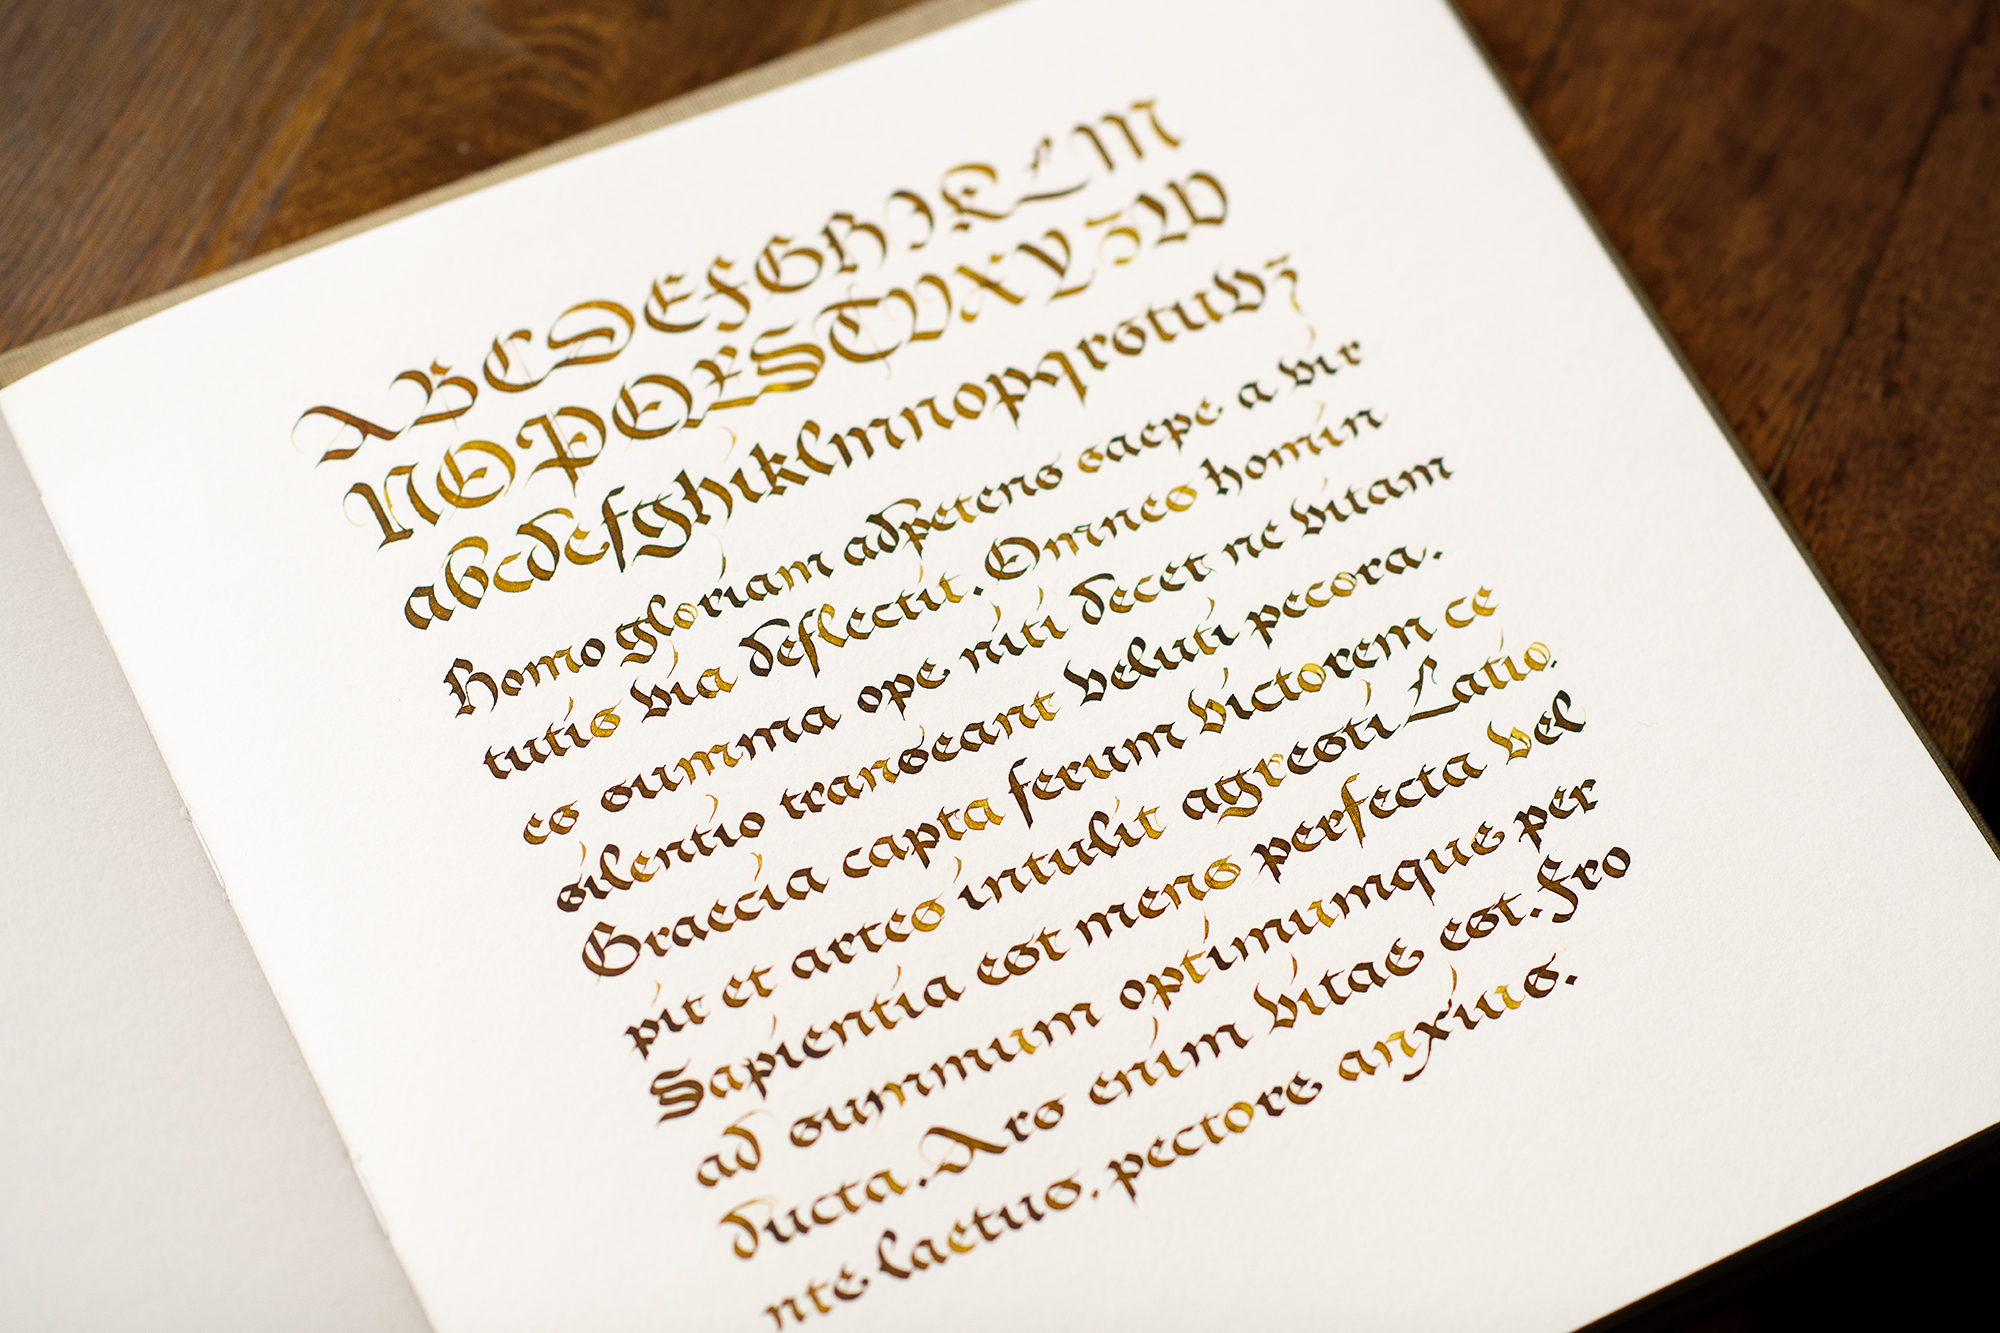 A B C D E F G H I K L M
N O P Q R S T V X Y Z W
a b c d e f g h i k l m n o p q r s t u v z
Homo gloriam adpetens saepe a vir
tutis via deflectit. Omnes homin
es summa ope niti decet ne vitam
silentio transeant veluti pecora.
Graecia capta ferum victorem ce
pit et artes intulit agresti Latio.
Sapientia est mens perfecta vel
ad summum optimumque per
ducta. Ars enim vitae est. Fro
nte laetus. pectore anxius.